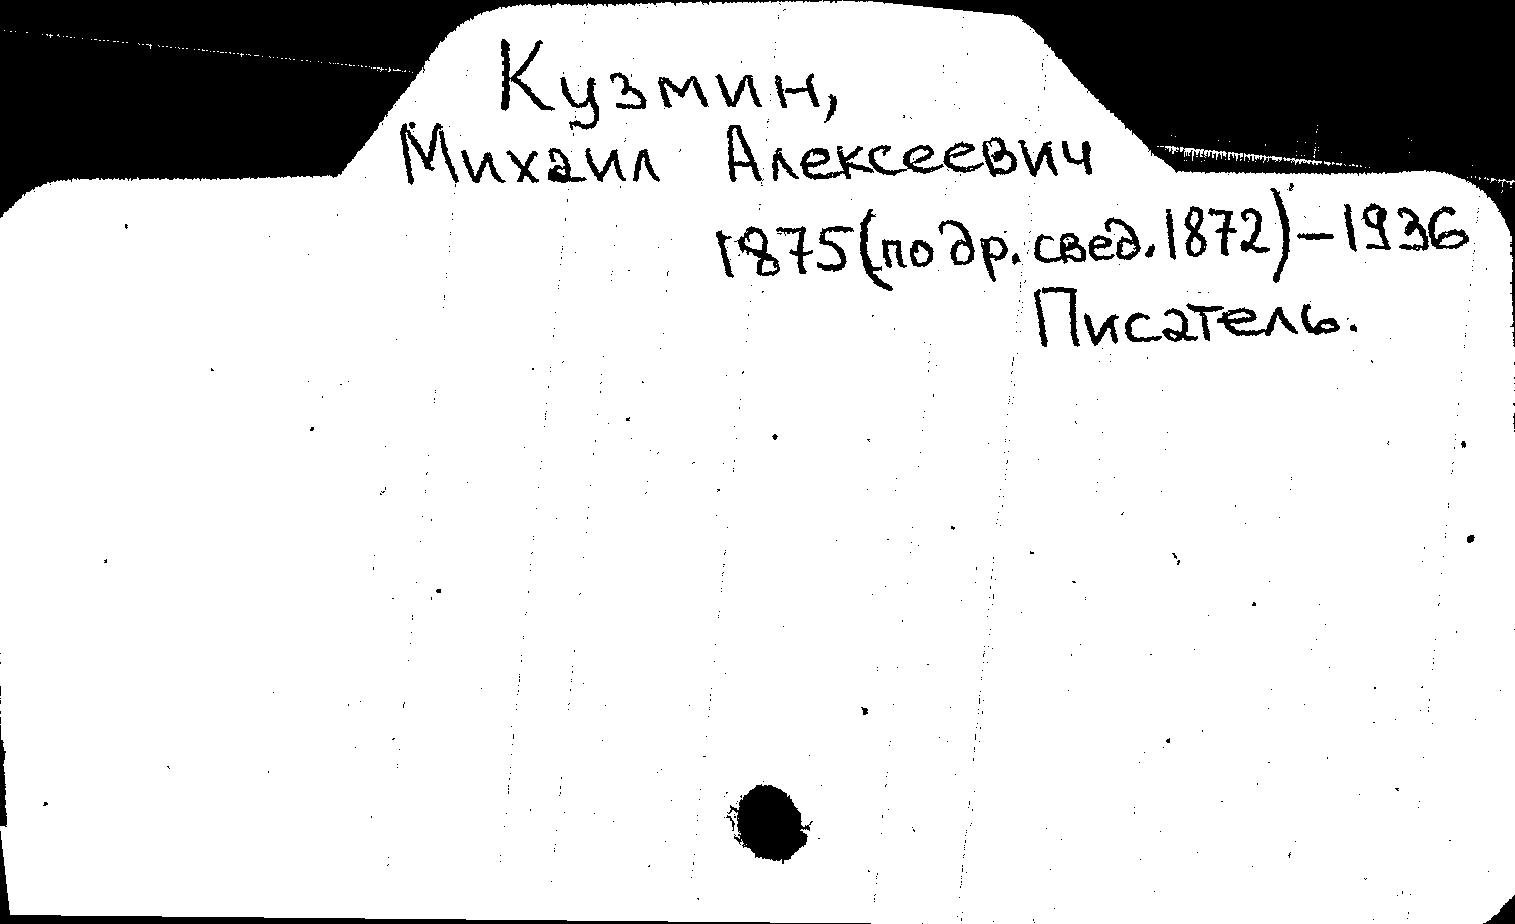 Кузмин,
Михаил Алексеевич
1875(по др. свед. 1872) – 1936
Писатель.